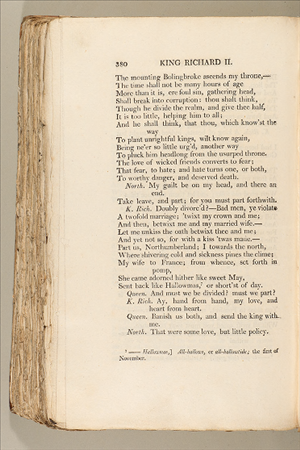 380 KING RICHARD II.
The mounting Bolingbroke ascends my throne,—
The time shall not be many hours of age
More than it is, ere foul sin, gathering head,
Shall break into corruption: thou shalt think,
Though he divide the realm, and give thee half,
It is too little, helping him to all;
And he shall think, that thou, which know'st the
way
To plant unrightful kings, wilt know again,
Being ne'er so little urg'd, another way
To pluck him headlong from the usurped throne.
The love of wicked friends converts to fear;
That fear, to hate; and hate turns one, or both,
To worthy danger, and deserved death.
North. My guilt be on my head, and there an
end.
Take leave, and part; for you must part forthwith.
K. Rich. Doubly divorc'd?—Bad men, ye violate
A twofold marriage; 'twixt my crown and me;
And then, betwixt me and my married wife.—
Let me unkiss the oath betwixt thee and me;
And yet not so, for with a kiss 'twas made.—
Part us, Northumberland; I towards the north,
Where shivering cold and sickness pines the clime;
My wife to France; from whence, set forth in
pomp,
She came adorned hither like sweet May,
Sent back like Hallowmas, or short'st of day.
Queen. And must we be divided? must we part?
K. Rich. Ay, hand from hand, my love, and
heart from heart.
Queen. Banish us both, and send the king with
me.
North. That were some love, but little policy.
— Hallowmas,] All-hallows, or all-hallowtide; the first of
November.